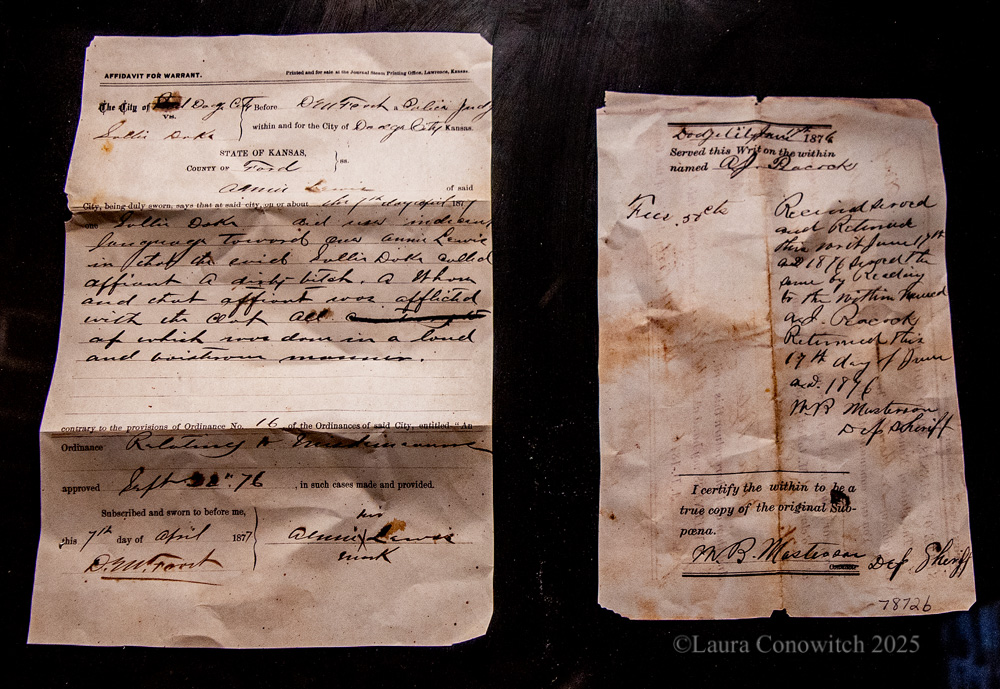 AFFIDAVIT FOR WARRANT.
Printed and for sale at the Journal Steam Printing Office, Lawrence, Kansas.
The City of Dodge City
vs.
Sallie Doke
Before D. M. Frost a Police Judg
within and for the City of Dodge City Kansas.
STATE OF KANSAS,
COUNTY OF Ford
ss:
Annie Lewis of said
City, being duly sworn, says that at said city, on or about the 7th day April 1877
one Sallie Doke did use indecent
language toward one Annie Lewis
in that the said Sallie Doke called
affiant a dirty bitch, a Whore
and that affiant was afflicted
with the clap all
of which was done in a loud
and boisterous manner.
contrary to the provisions of Ordinance No. 16 of the Ordinances of said City, entitled "An
Ordinance Relating to
approved Sept 76 , in such cases made and provided.
Subscribed and sworn to before me,
this 7th day of April 1877
D. M. Frost
her
Annie X Lewis
mark
Dodge City June 1876
Served this Writ on the within
named A J Peacock
Fees 50cts
Received served
and Returned
this writ June 17th
AD 1876 served the
same by Reading
to the within named
A. J. Peacock
Returned this
17th day of June
A.D. 1876
W B Masterson
Def Sheriff
I certify the within to be a
true copy of the original Sub-
pœna.
W. B. Masterson
Def Sheriff
78726
©Laura Conowitch 2025